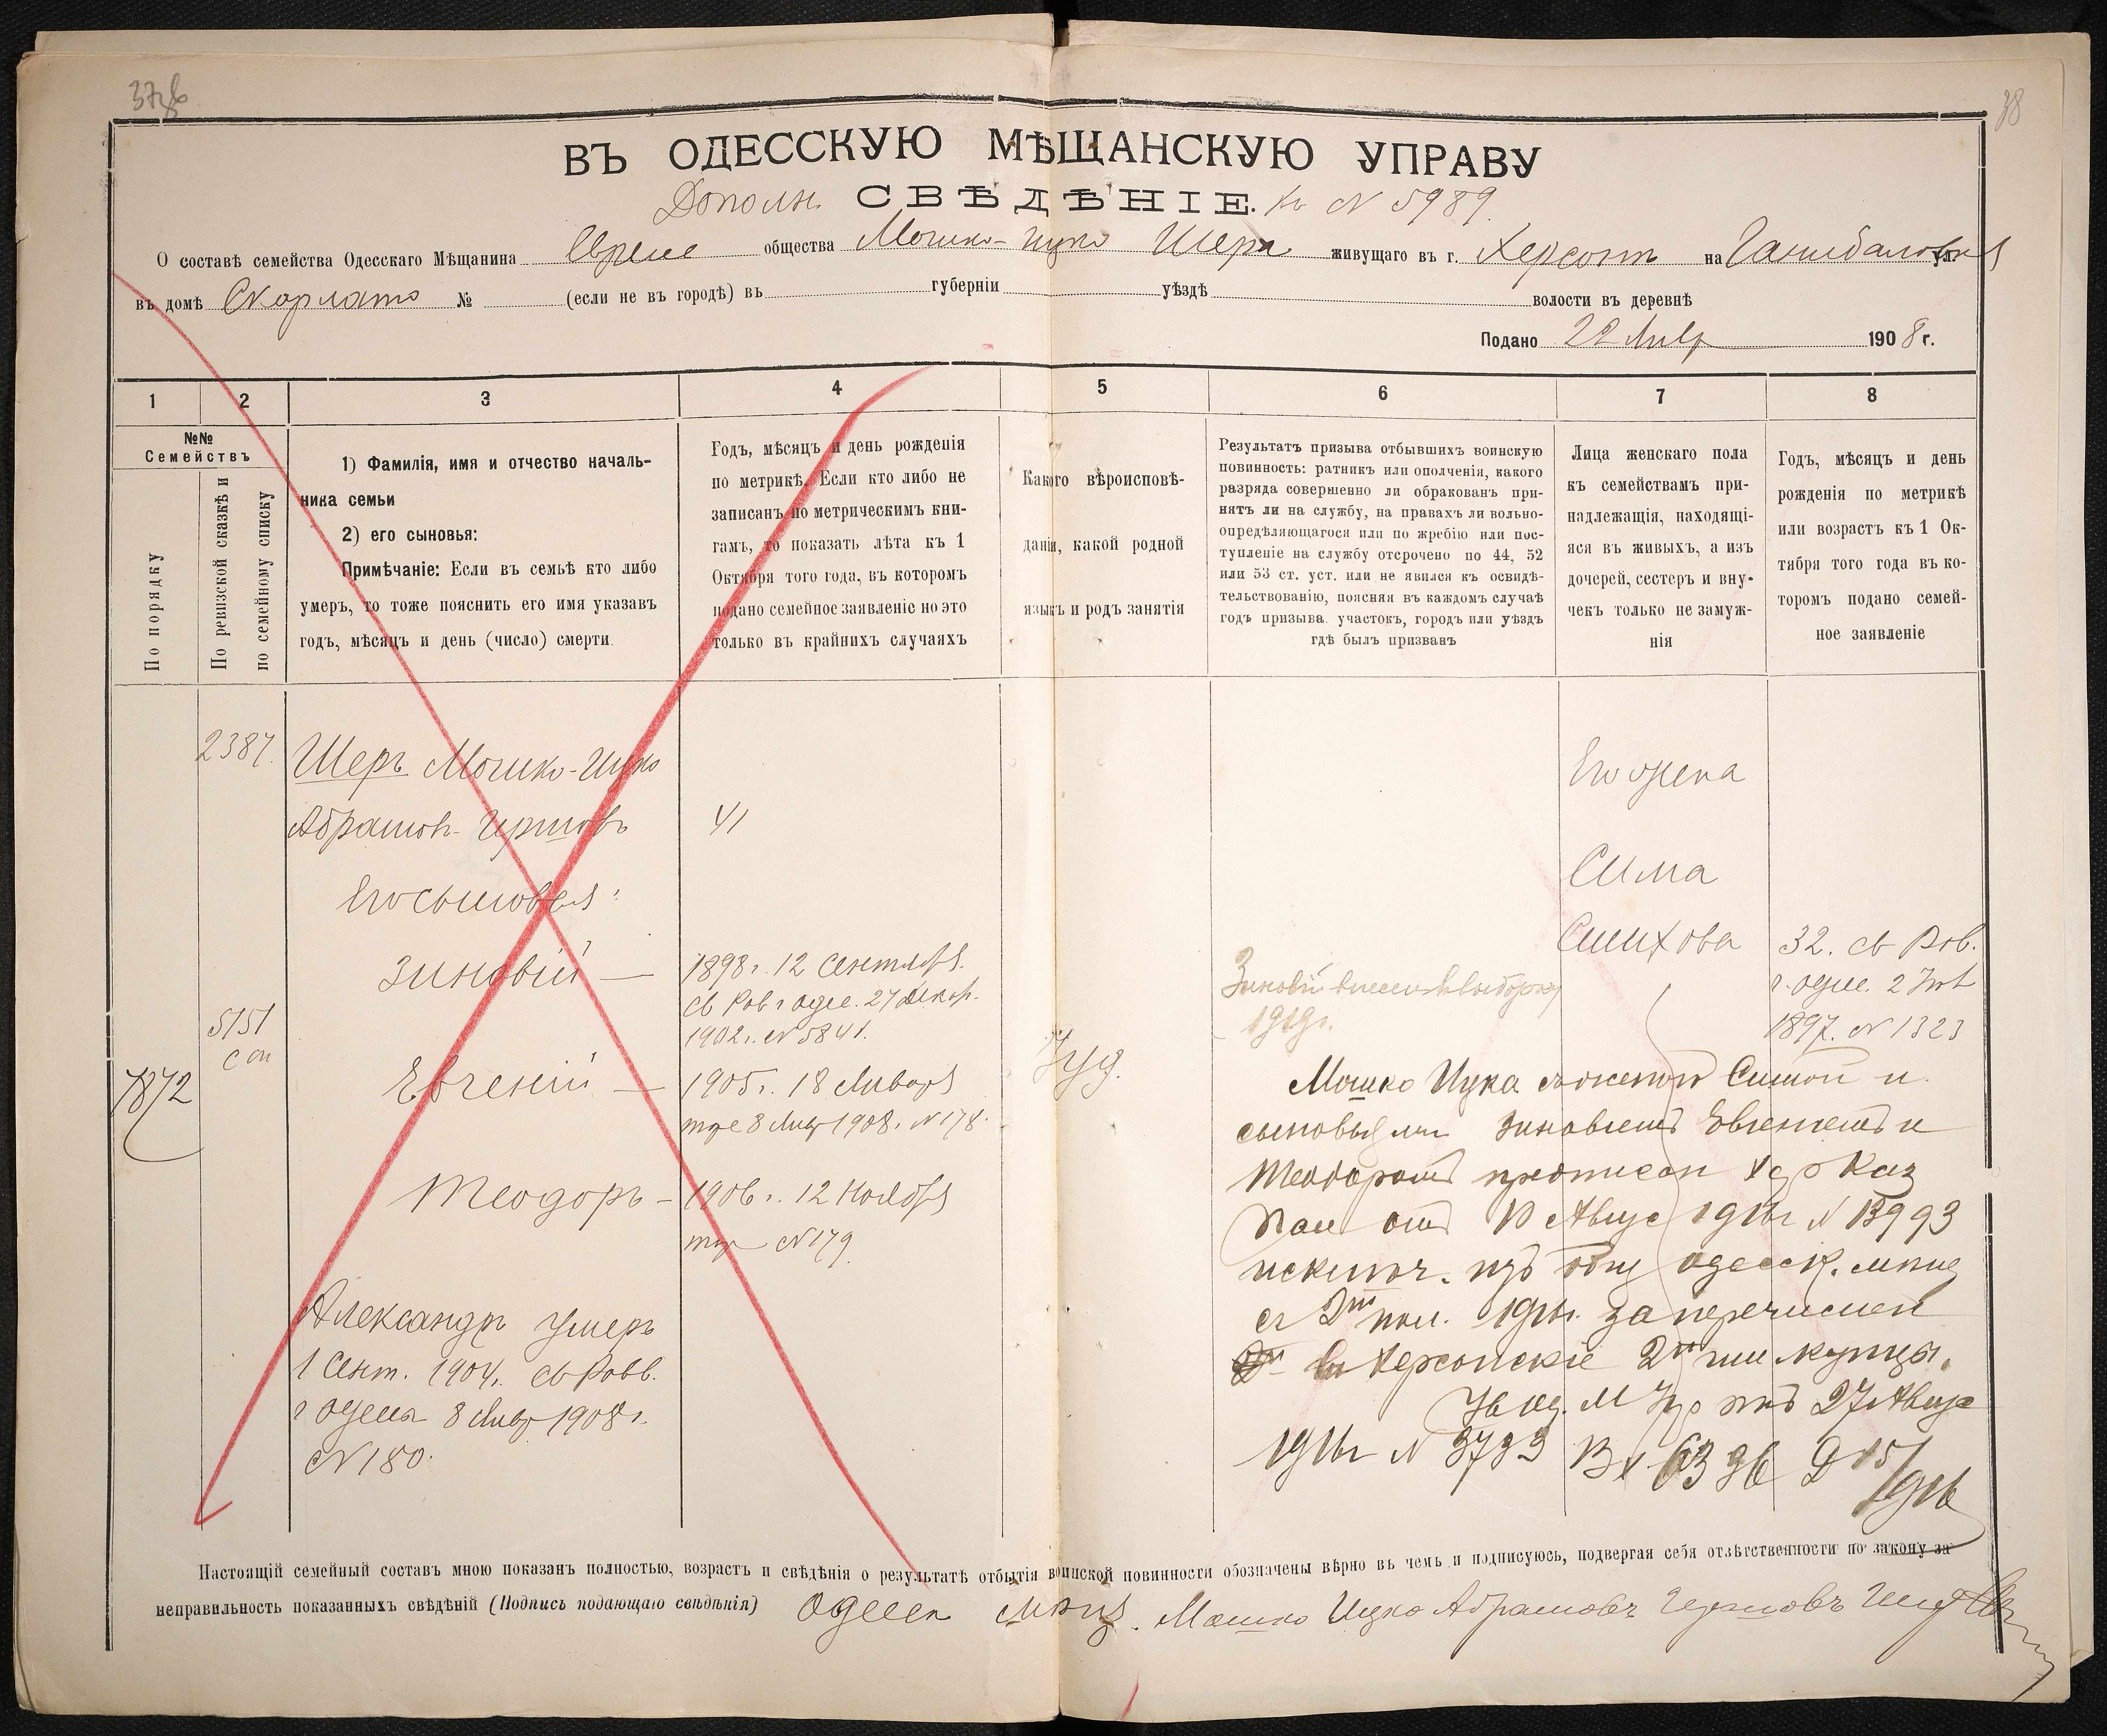 37об
38
ВЪ ОДЕССКУЮ МѢЩАНСКУЮ УПРАВУ
Дополн. СВѢДѢНІЕ. къ N 5989.
О составѣ семейства Одесскаго Мѣщанина Евреис общества Мошко-Ицко Шера живущаго въ г. Херсонѣ на ул.
въ домѣ Скарлато № (если не въ городѣ) въ губерніи уѣздѣ волости въ деревнѣ
Подано 22 Янвр 1908 г.
1 2 3 4 5 6 7 8
№№
Семействъ
По порядку
По ревизской сказкѣ и
по семейному списку
1) Фамилія, имя и отчество началь-
ника семьи
2) его сыновья:
Примѣчаніе: Если въ семьѣ кто либо
умеръ, то тоже пояснить его имя указавъ
годъ, мѣсяцъ и день (число) смерти.
Годъ, мѣсяцъ и день рожденія
по метрикѣ. Если кто либо не
записанъ по метрическимъ кни-
гамъ, то показать лѣта къ 1
Октября того года, въ которомъ
подано семейное заявленіе но это
только въ крайнихъ случаяхъ
Какого вѣроисповѣ-
данія, какой родной
языкъ и родъ занятія
Результатъ призыва отбывшихъ воинскую
повинность: ратникъ или ополченія, какого
разряда совершенно ли обракованъ при-
нятъ ли на службу, на правахъ ли вольно-
опредѣляющагося или по жребію или пос-
тупленіе на службу отсрочено по 44, 52
или 53 ст. уст. или не явился къ освидѣ-
тельствованію, поясняя въ каждомъ случаѣ
годъ призыва. участокъ, городъ или уѣздъ
гдѣ былъ призванъ
Лица женскаго пола
къ семействамъ при-
надлежащія, находящі-
яся въ живыхъ, а изъ
дочерей, сестеръ и вну-
чекъ только не замуж-
нія
Годъ, мѣсяцъ и день
рожденія по метрикѣ
или возрастъ къ 1 Ок-
тября того года въ ко-
торомъ подано семей-
ное заявленіе
2387. Шеръ Мошко-Ицко
Абрамовъ-Гершовъ 41
Его сыновья:
Зиновій — 1898 г. 12 Сентября.
св Рав г Одес. 27 Декбр.
1902 г. N 5841.
5151
сп
7872
Евгеній — 1905 г. 18 Января
тоже 8 Янвр 1908 г. N 178.
Теодоръ — 1906 г. 12 Ноября
тоже N 179.
Александръ умеръ
1 Сент. 1904 г. св Равв.
г Одессы 8 Янвр 1908 г.
N 180.
Іуд.
Его жена
Сима
Симхова 32. св Рав.
г. Одес. 2
1897. N 1323
Зиновій внесенъ въ выборку
1919 г.
Мошко Ицка съ женой Симой и
сыновьями Зиновіемъ Евгеніемъ и
Теодоромъ Каз
Пал отъ 10 Авгус 1916 г N 13993
исключ. изъ общ одесск. мѣщ
съ 2й пол. 1916 г. за перечислен
въ Херсонскіе 2й гил купцы.
Ув Од. М Упр отъ 27 Авгус
1916 г N 3793 Вх 6336 Д 15/916
Настоящій семейный составъ мною показанъ полностью, возрастъ и свѣдѣнія о результатѣ отбытія воинской повинности обозначены вѣрно въ чемъ и подписуюсь, подвергая себя отвѣтственности по закону за
неправильность показанныхъ свѣдѣній (Подпись подающаго свѣдѣнія) Одесск мѣщ. Мошко Ицко Абрамовъ Гершовъ Шеръ